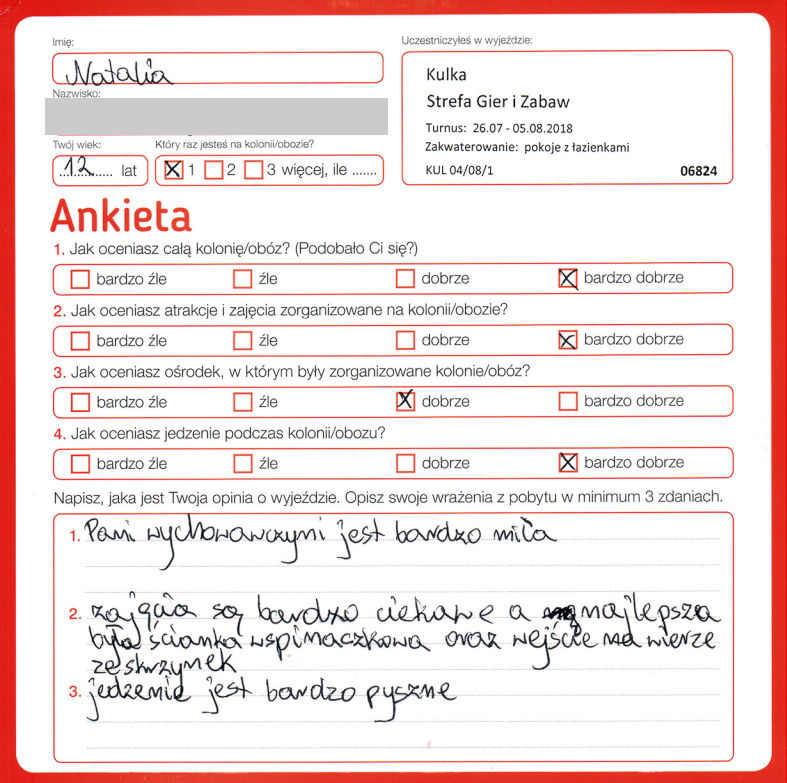 Imię:
Natalia
Nazwisko:
Twój wiek:
12 lat
Który raz jesteś na kolonii/obozie?
X 1 2 3 więcej, ile .......
Uczestniczyłeś w wyjeździe:
Kulka
Strefa Gier i Zabaw
Turnus: 26.07 - 05.08.2018
Zakwaterowanie: pokoje z łazienkami
KUL 04/08/1 06824
Ankieta
1. Jak oceniasz całą kolonię/obóz? (Podobało Ci się?)
bardzo źle źle dobrze X bardzo dobrze
2. Jak oceniasz atrakcje i zajęcia zorganizowane na kolonii/obozie?
bardzo źle źle dobrze X bardzo dobrze
3. Jak oceniasz ośrodek, w którym były zorganizowane kolonie/obóz?
bardzo źle źle X dobrze bardzo dobrze
4. Jak oceniasz jedzenie podczas kolonii/obozu?
bardzo źle źle dobrze X bardzo dobrze
Napisz, jaka jest Twoja opinia o wyjeździe. Opisz swoje wrażenia z pobytu w minimum 3 zdaniach.
1. Pani wychowawczyni jest bardzo miła
2. zajęcia są bardzo ciekawe a najlepsza
była ścianka wspinaczkowa oraz wejście na wierze
ze skrzynek
3. jedzenie jest bardzo pyszne